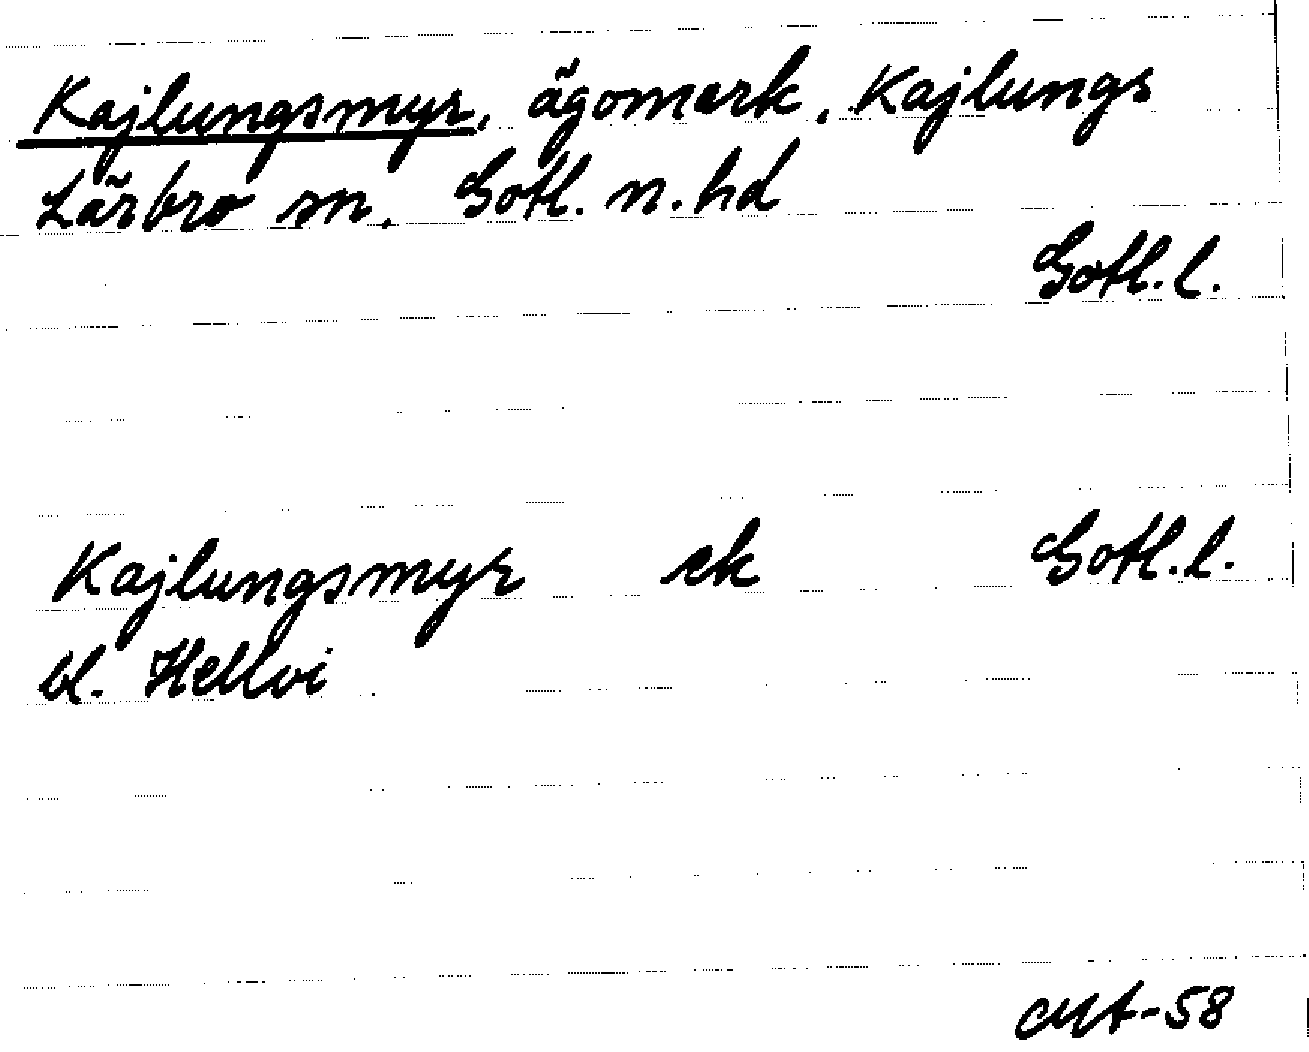 Kajlungsmyr, ägomark, Kajlungs
Lärbro sn, Gotl. n. hd
Gotl. l.
Kajlungsmyr ek Gotl. l.
bl. Hellvi